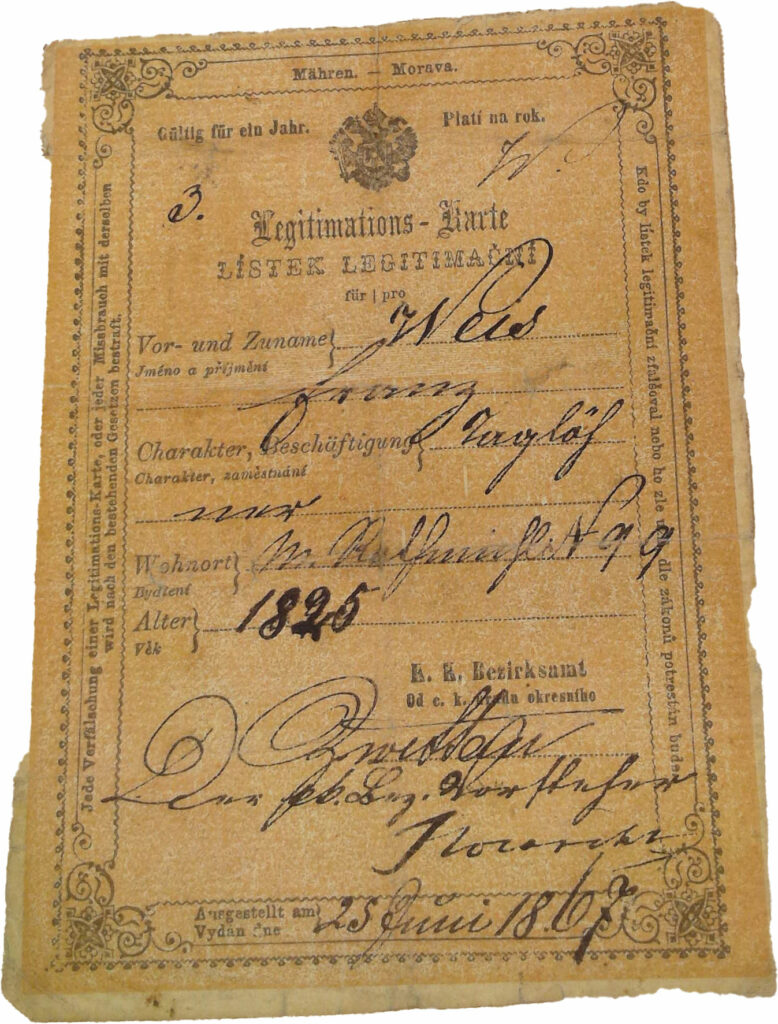 Mähren. — Morava.
Gültig für ein Jahr.
Platí na rok.
3.
W.
Legitimations-Karte
LÍSTEK LEGITIMAČNÍ
für | pro
Vor- und Zuname} Weis
Jméno a příjmění
Franz
Charakter, Beschäftigung} Taglöh
Charakter, zaměstnání
ner
Wohnort} N 99
Bydlení
Alter} 1825
Věk
K. K. Bezirksamt
Od c. k. úřadu okresního
Zwittau
Der Bez. Vorsteher
Ausgestellt am} 25 Juni 1867
Vydán dne
Jede Verfälschung einer Legitimations-Karte, oder jeder Missbrauch mit derselben
wird nach den bestehenden Gesetzen bestraft.
Kdo by lístek legitimační zfalšoval nebo ho zle dle zákonů potrestán bude.